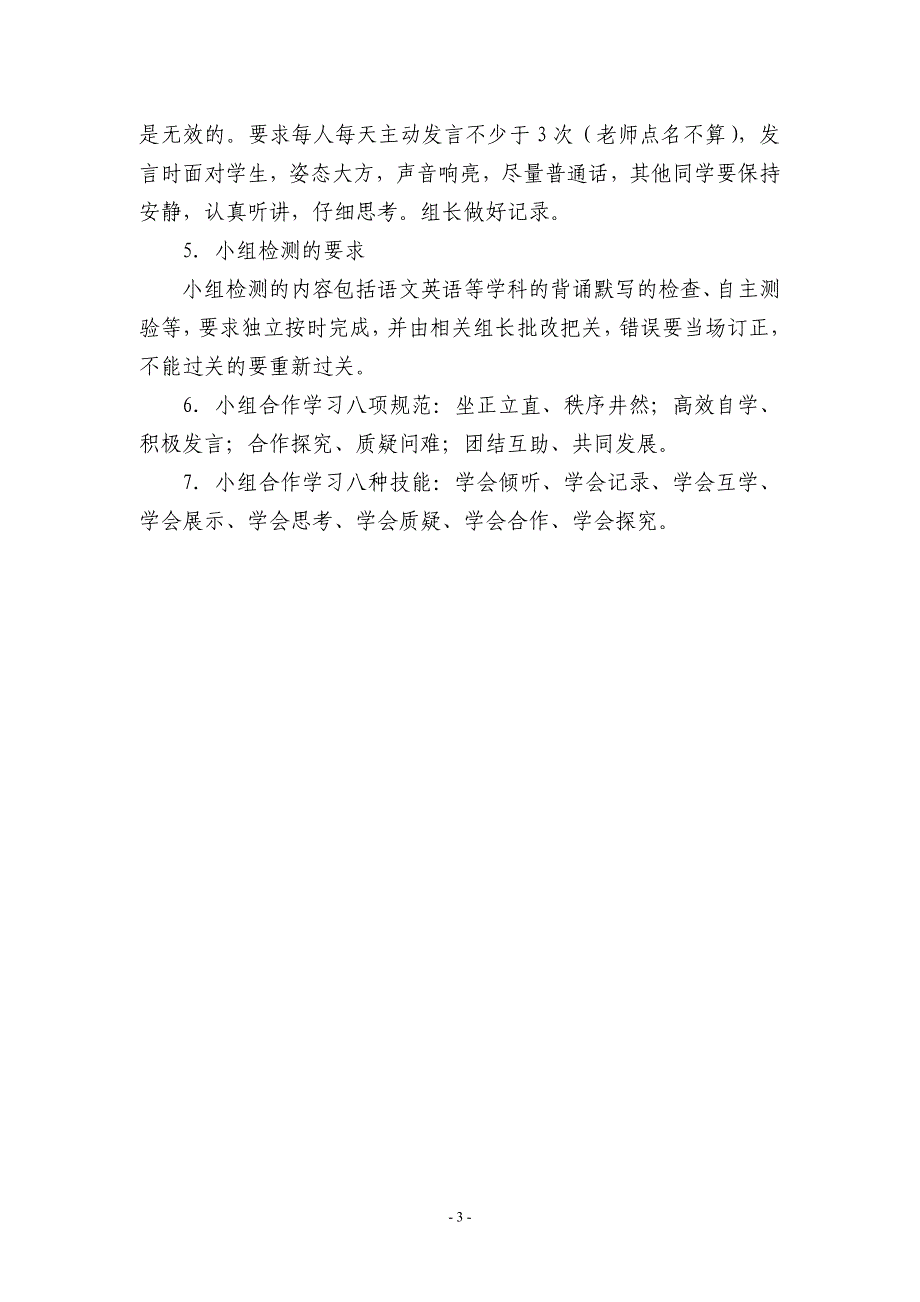 是无效的。要求每人每天主动发言不少于 3 次（老师点名不算），发
言时面对学生，姿态大方，声音响亮，尽量普通话，其他同学要保持
安静，认真听讲，仔细思考。组长做好记录。
5．小组检测的要求
小组检测的内容包括语文英语等学科的背诵默写的检查、自主测
验等，要求独立按时完成，并由相关组长批改把关，错误要当场订正，
不能过关的要重新过关。
6．小组合作学习八项规范：坐正立直、秩序井然；高效自学、
积极发言；合作探究、质疑问难；团结互助、共同发展。
7．小组合作学习八种技能：学会倾听、学会记录、学会互学、
学会展示、学会思考、学会质疑、学会合作、学会探究。
- 3 -